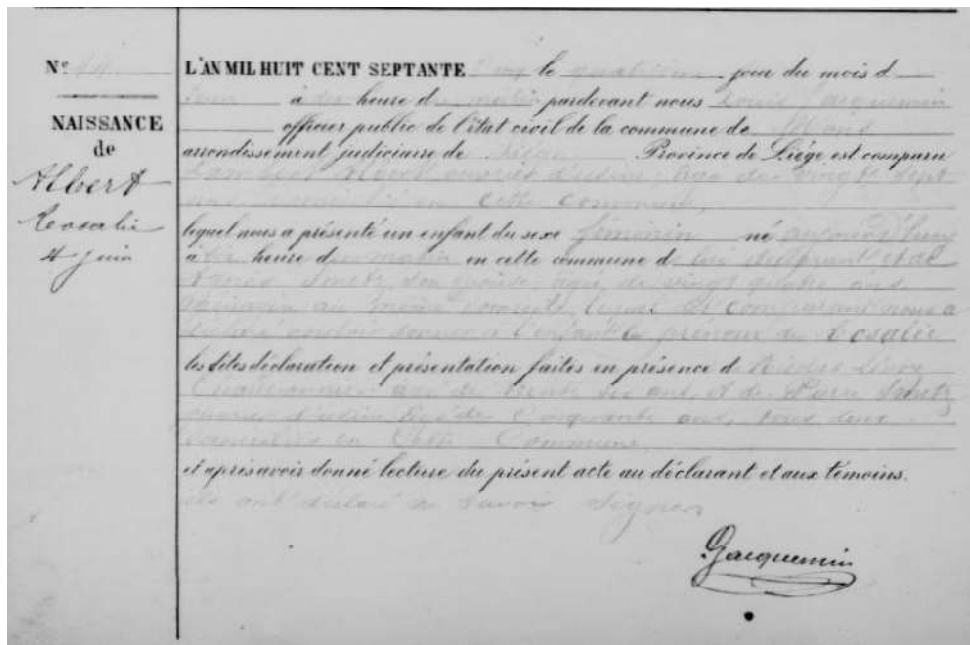 Nº 44
NAISSANCE
de
Albert
Rosalie
4 juin
L'AN MIL HUIT CENT SEPTANTE le quatrième jour du mois d
juin à dix heure du matin pardevant nous Louis Jacquemin
officier public de l'état civil de la commune de Mons
arrondissement judiciaire de Liége Province de Liége, est comparu
Lambert Albert ouvrier d'usine, âgé de vingt sept
ans domicilié en cette commune,
lequel nous a présenté un enfant du sexe féminin né aujourd'hui
à heure du matin en cette commune de lui déclarant et de
Agnès Smets, son épouse, âgée de vingt quatre ans
au même domicile, lequel comparant nous a
déclaré vouloir donner à l'enfant le prénom de Rosalie
les dites déclaration et présentation faites en présence de
âgé de trente six ans, et de Pierre Smets
ouvrier d'usine âgé de cinquante ans, tous deux
domiciliés en cette Commune
et après avoir donné lecture du présent acte au déclarant et aux témoins.
ils ont déclaré ne savoir signer
Jacquemin